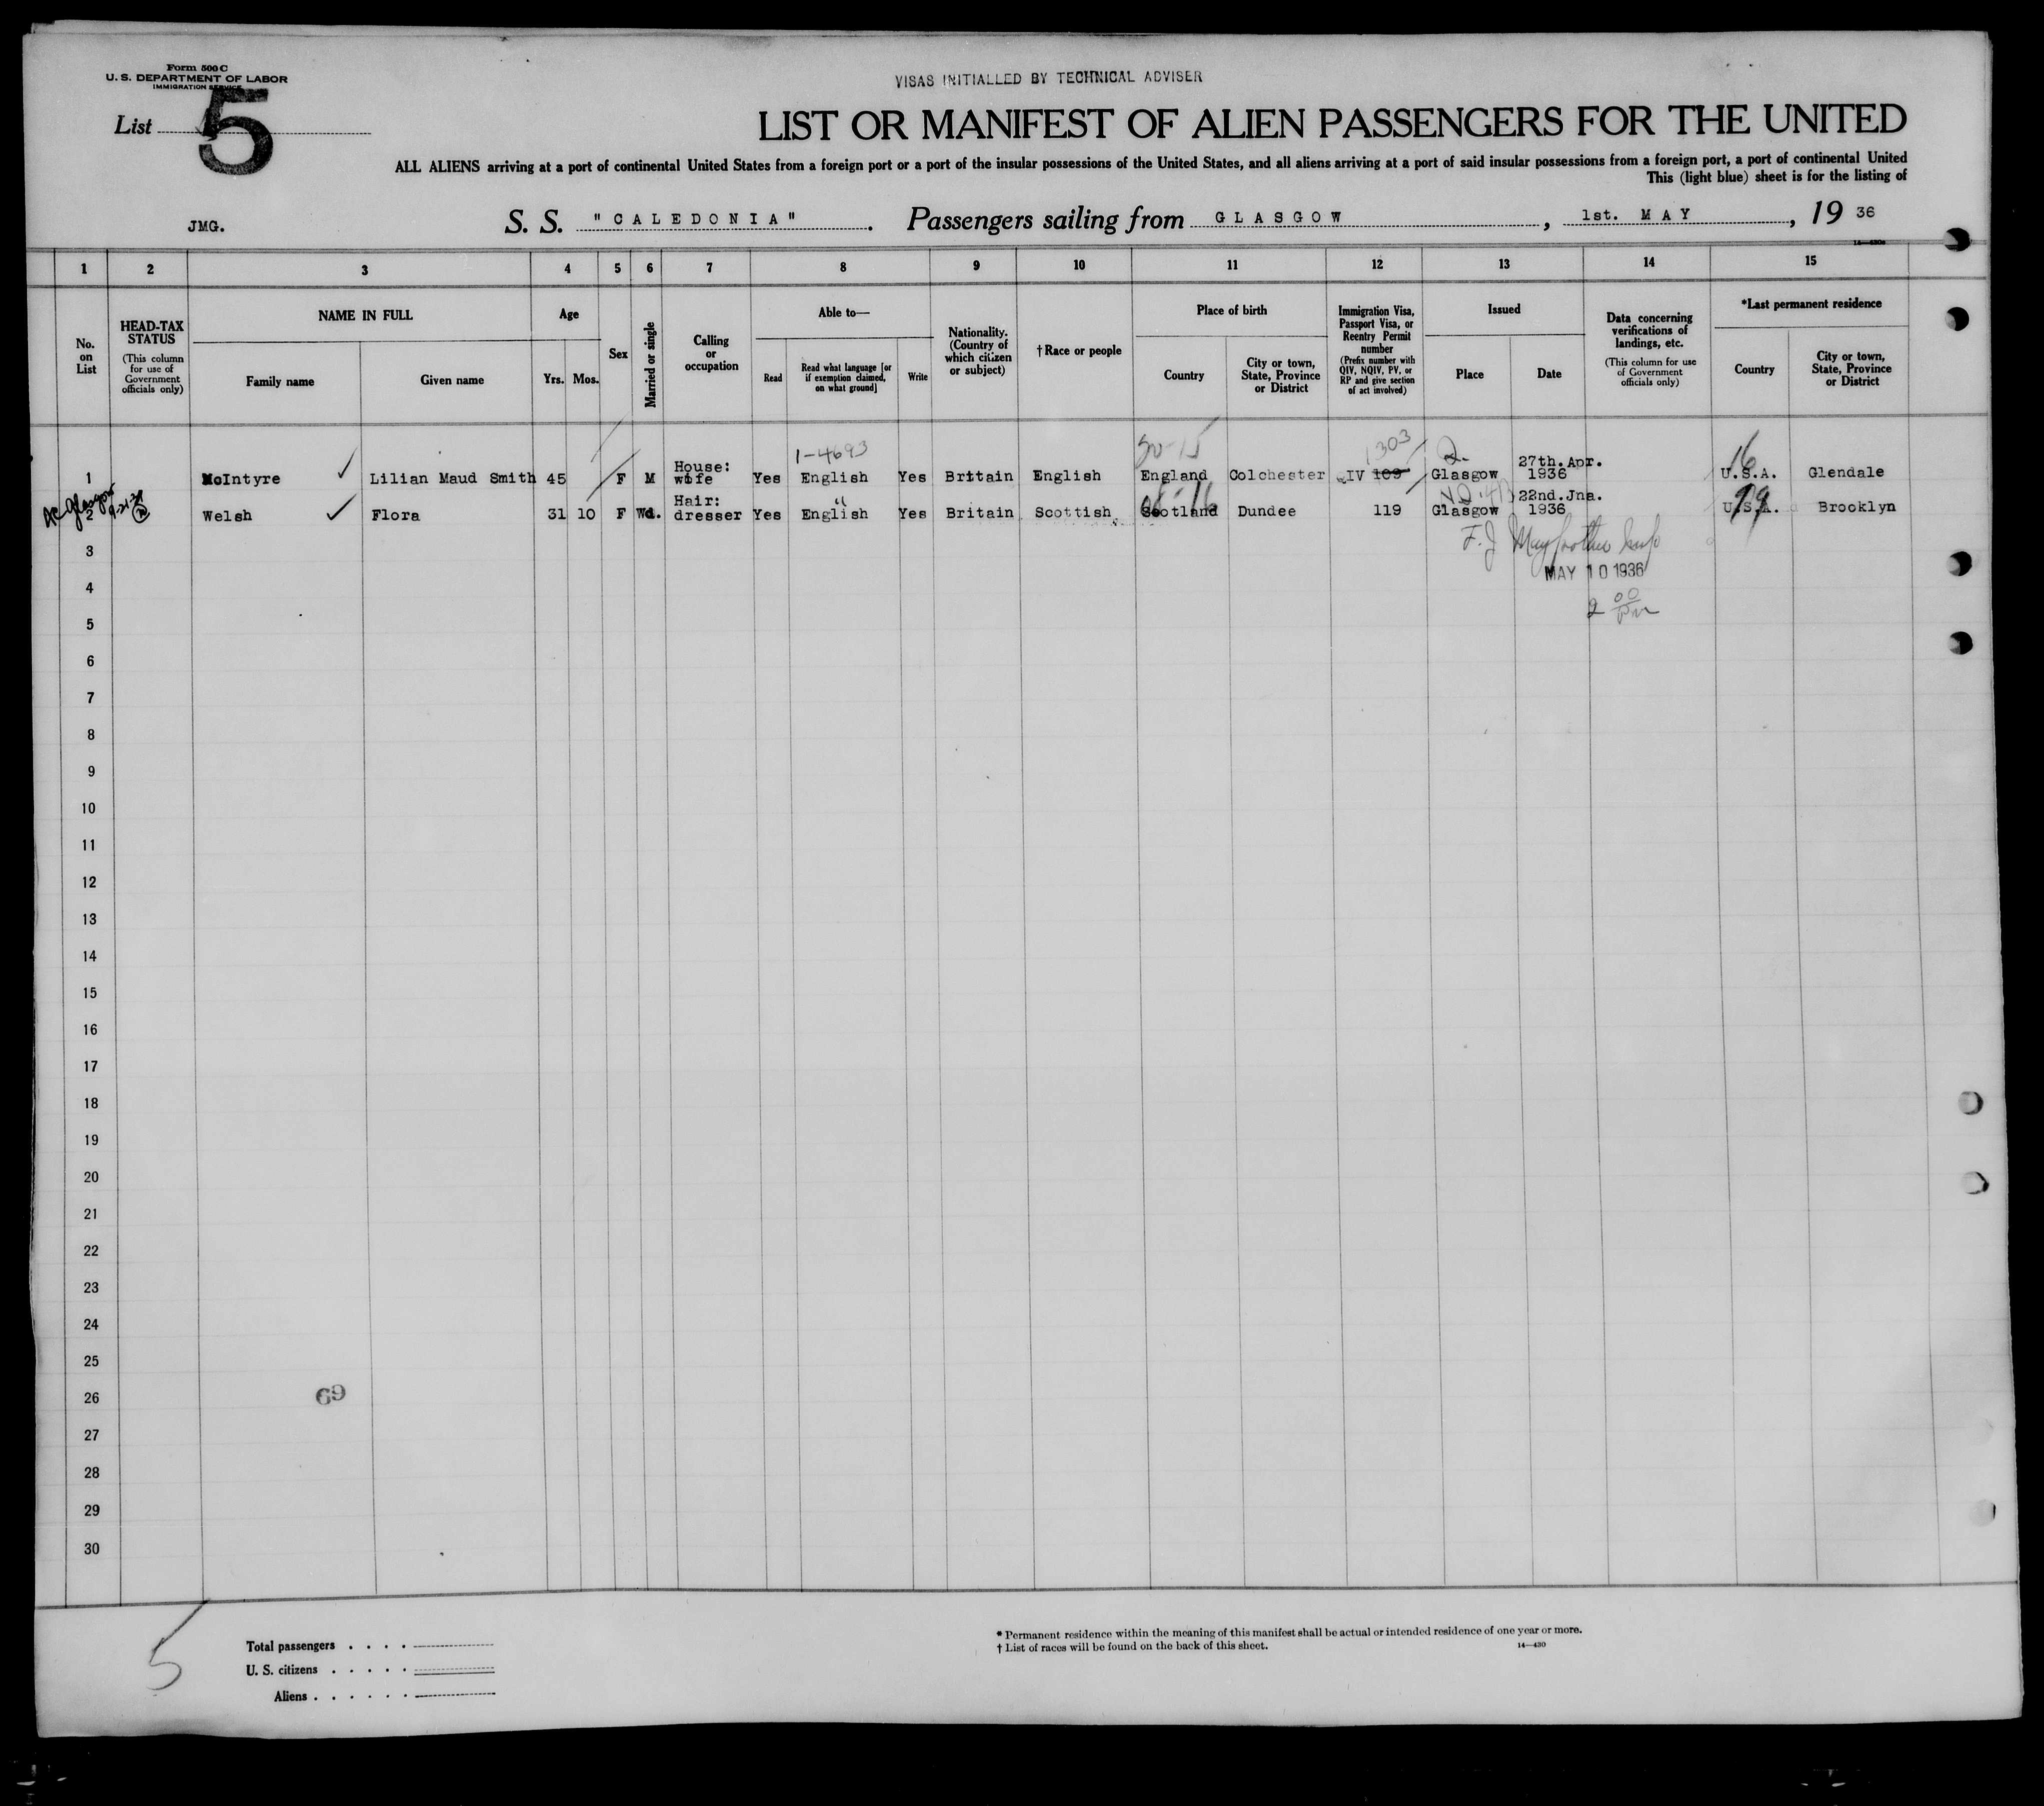 Form 500 C
U. S. DEPARTMENT OF LABOR
IMMIGRATION SERVICE
VISAS INITIALLED BY TECHNICAL ADVISER
List 5
LIST OR MANIFEST OF ALIEN PASSENGERS FOR THE UNITED
ALL ALIENS arriving at a port of continental United States from a foreign port or a port of the insular possessions of the United States, and all aliens arriving at a port of said insular possessions from a foreign port, a port of continental United
This (light blue) sheet is for the listing of
JMG. S. S. "CALEDONIA". Passengers sailing from GLASGOW, 1st. MAY, 19 36
1 2 3 4 5 6 7 8 9 10 11 12 13 14 15
No. on List
HEAD-TAX STATUS
(This column for use of Government officials only)
NAME IN FULL
Family name
Given name
Age
Yrs. Mos.
Sex
Married or single
Calling or occupation
Able to—
Read
Read what language [or if exemption claimed, on what ground]
Write
Nationality. (Country of which citizen or subject)
† Race or people
Place of birth
Country
City or town, State, Province or District
Immigration Visa, Passport Visa, or Reentry Permit number
(Prefix number with QIV, NQIV, PV, or RP and give section of act involved)
Issued
Place
Date
Data concerning verifications of landings, etc.
(This column for use of Government officials only)
*Last permanent residence
Country
City or town, State, Province or District
1-4693 1303 16
1 McIntyre Lilian Maud Smith 45 F M House: wife Yes English Yes Britain English England Colchester QIV 109 Glasgow 27th.Apr. 1936 U.S.A. Glendale
2 Welsh Flora 31 10 F Wd. Hair: dresser Yes English Yes Britain Scottish Scotland Dundee 119 Glasgow 22nd.Jna. 1936 U.S.A. Brooklyn
3
MAY 10 1936
4
2 00 pm
5
6
7
8
9
10
11
12
13
14
15
16
17
18
19
20
21
22
23
24
25
26
69
27
28
29
30
5
Total passengers . . . .
U. S. citizens . . . . .
Aliens . . . . . .
* Permanent residence within the meaning of this manifest shall be actual or intended residence of one year or more.
† List of races will be found on the back of this sheet.
14—430